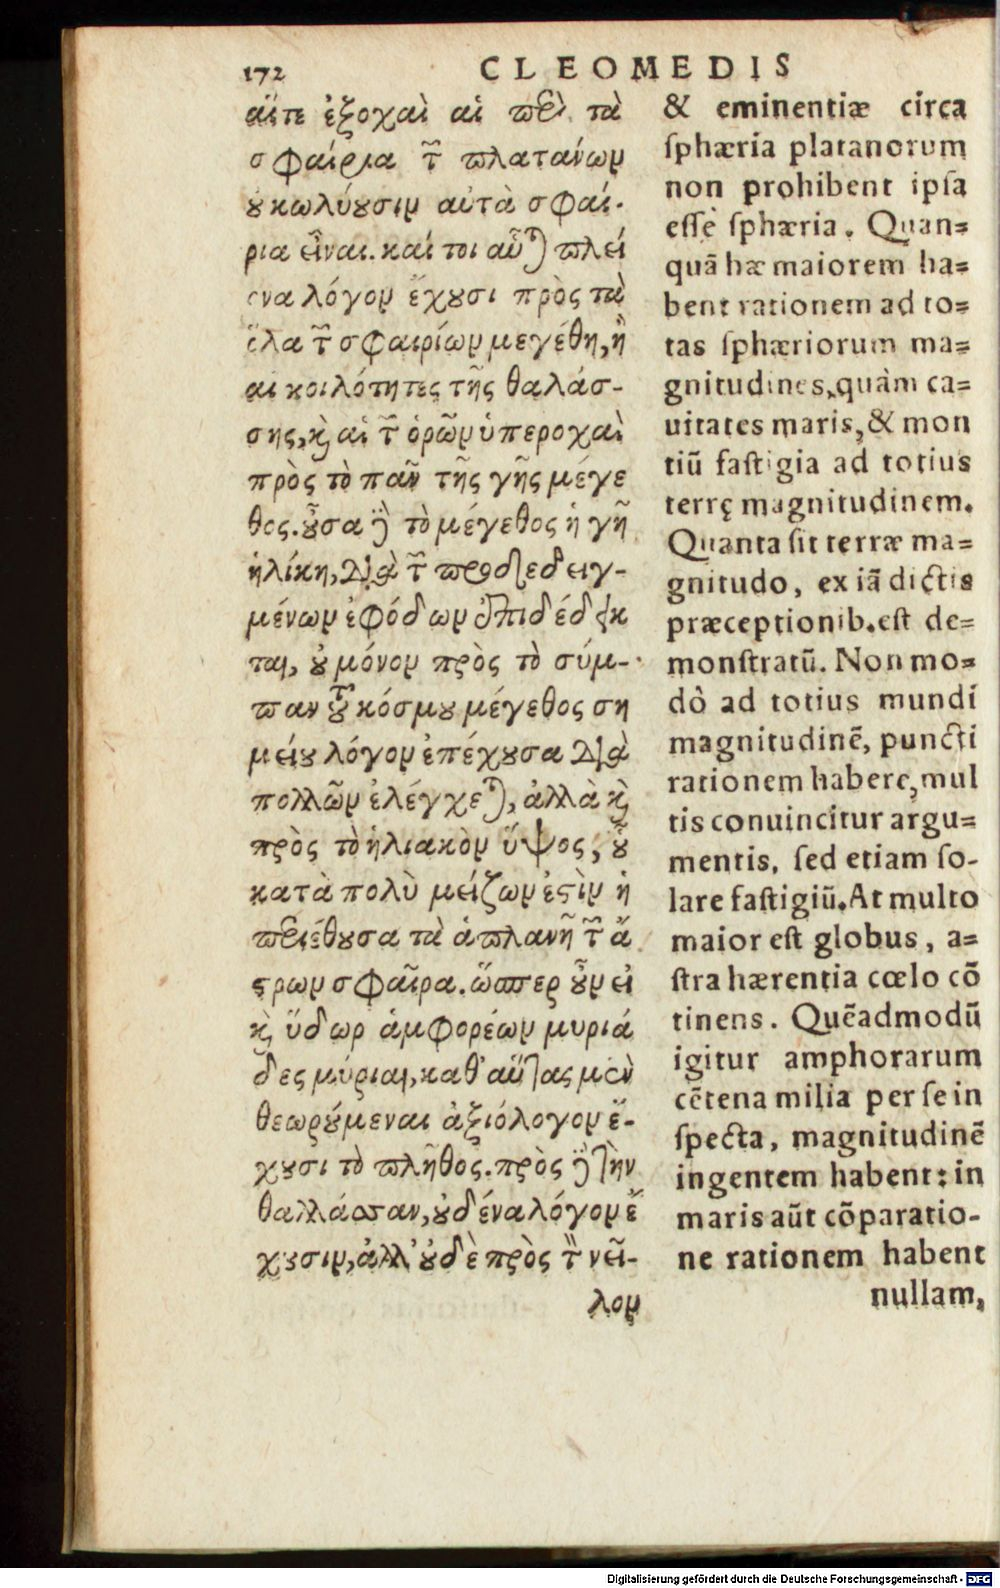 172
CLEOMEDIS
αἵτε ἐξοχαὶ αἱ περὶ τὰ
σφαίρια τῶν πλατάνων
οὐ κωλύουσιν αὐτὰ σφαί-
ρια εἶναι. καί τοι αὗται πλεί
ονα λόγον ἔχουσι πρὸς τὰ
ὅλα τῶν σφαιρίων μεγέθη, ἢ
αἱ κοιλότητες τῆς θαλάσ-
σης, καὶ αἱ τῶν ὀρῶν ὑπεροχαὶ
πρὸς τὸ πᾶν τῆς γῆς μέγε
θος. οὖσα δὲ τὸ μέγεθος ἡ γῆ
ἡλίκη, διὰ τῶν προδεδειγ-
μένων ἐφόδων ἐπιδέδεικ
ται, οὐ μόνον πρὸς τὸ σύμ-
παν τοῦ κόσμου μέγεθος ση
μείου λόγον ἐπέχουσα διὰ
πολλῶν ἐλέγχεται, ἀλλὰ καὶ
πρὸς τὸ ἡλιακὸν ὕψος, οὗ
κατὰ πολὺ μείζων ἐστὶν ἡ
περιέχουσα τὰ ἀπλανῆ τῶν ἄ
στρων σφαῖρα. ὥσπερ οὖν εἰ
καὶ ὕδωρ ἀμφορέων μυριά
δες μύριαι, καθ' αὑτας μὲν
θεωρούμεναι ἀξιόλογον ἔ-
χουσι τὸ πλῆθος. πρὸς δὲ τὴν
θαλλάσσαν, οὐδένα λόγον ἔ
χουσιν, ἀλλ' οὐδὲ πρὸς τὸν νεῖ-
λον
& eminentiæ circa
sphæria platanorum
non prohibent ipsa
esse sphæria. Quan=
quā hæ maiorem ha=
bent rationem ad to=
tas sphæriorum ma=
gnitudines, quàm ca=
uitates maris, & mon
tiū fastigia ad totius
terrę magnitudinem.
Quanta sit terræ ma=
gnitudo, ex iā dictis
præceptionib. est de=
monstratū. Non mo=
dò ad totius mundi
magnitudinē, puncti
rationem habere, mul
tis conuincitur argu=
mentis, sed etiam so-
lare fastigiū. At multo
maior est globus, a=
stra hærentia cœlo cō
tinens. Quēadmodū
igitur amphorarum
cētena milia per se in
specta, magnitudinē
ingentem habent: in
maris aūt cōparatio-
ne rationem habent
nullam,
Digitalisierung gefördert durch die Deutsche Forschungsgemeinschaft - DFG